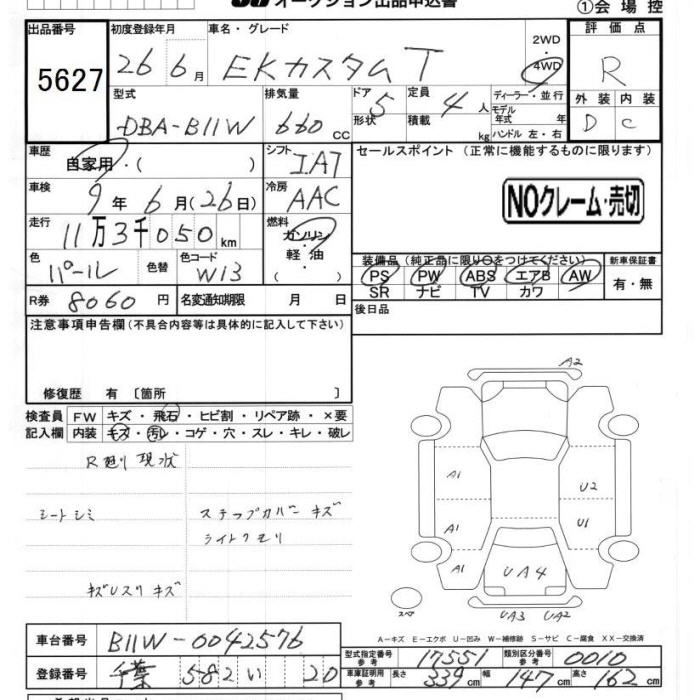 オークション出品申込書
①会場控
出品番号 5627
初度登録年月 26年 6月
車名・グレード EKカスタム T
2WD・4WD
評価点 R
型式 DBA-B11W
排気量 660 CC
ドア形状 5
定員 4 人
積載 kg
ディーラー・並行
モデル年式 年
ハンドル 左・右
外装 D
内装 C
車歴 自家用・( )
シフト IAT
セールスポイント(正常に機能するものに限ります)
車検 9年 6月(26日)
冷房 AAC
NOクレーム・売切
走行 11万3千050km
燃料 ガソリン・軽油
色 パール
色替
色コード W13
装備品(純正品に限り○をつけてください)
新車保証書
PS PW ABS エアB AW
SR ナビ TV カワ
有・無
R券 8060円
名変通知期限 月 日
後日品
注意事項申告欄(不具合内容等は具体的に記入して下さい)
修復歴 有〔箇所 〕
検査員記入欄
FW キズ・飛石・ヒビ割・リペア跡・×要
内装 キズ・汚レ・コゲ・穴・スレ・キレ・破レ
R廻り 現状
シートシミ
ステップカバー キズ
ライトクモリ
キズUスリキズ
A2
A1
U2
A1
U1
A1
UA4
スペア
UA3 UA2
A－キズ E－エクボ U－凹み W－補修跡 S－サビ C－腐食 XX－交換済
車台番号 B11W-0042576
登録番号 千葉 582 い 20
型式指定番号 参考 17551
類別区分番号 参考 0010
車庫証明用 参考 長さ 339cm 幅 147cm 高さ 162cm